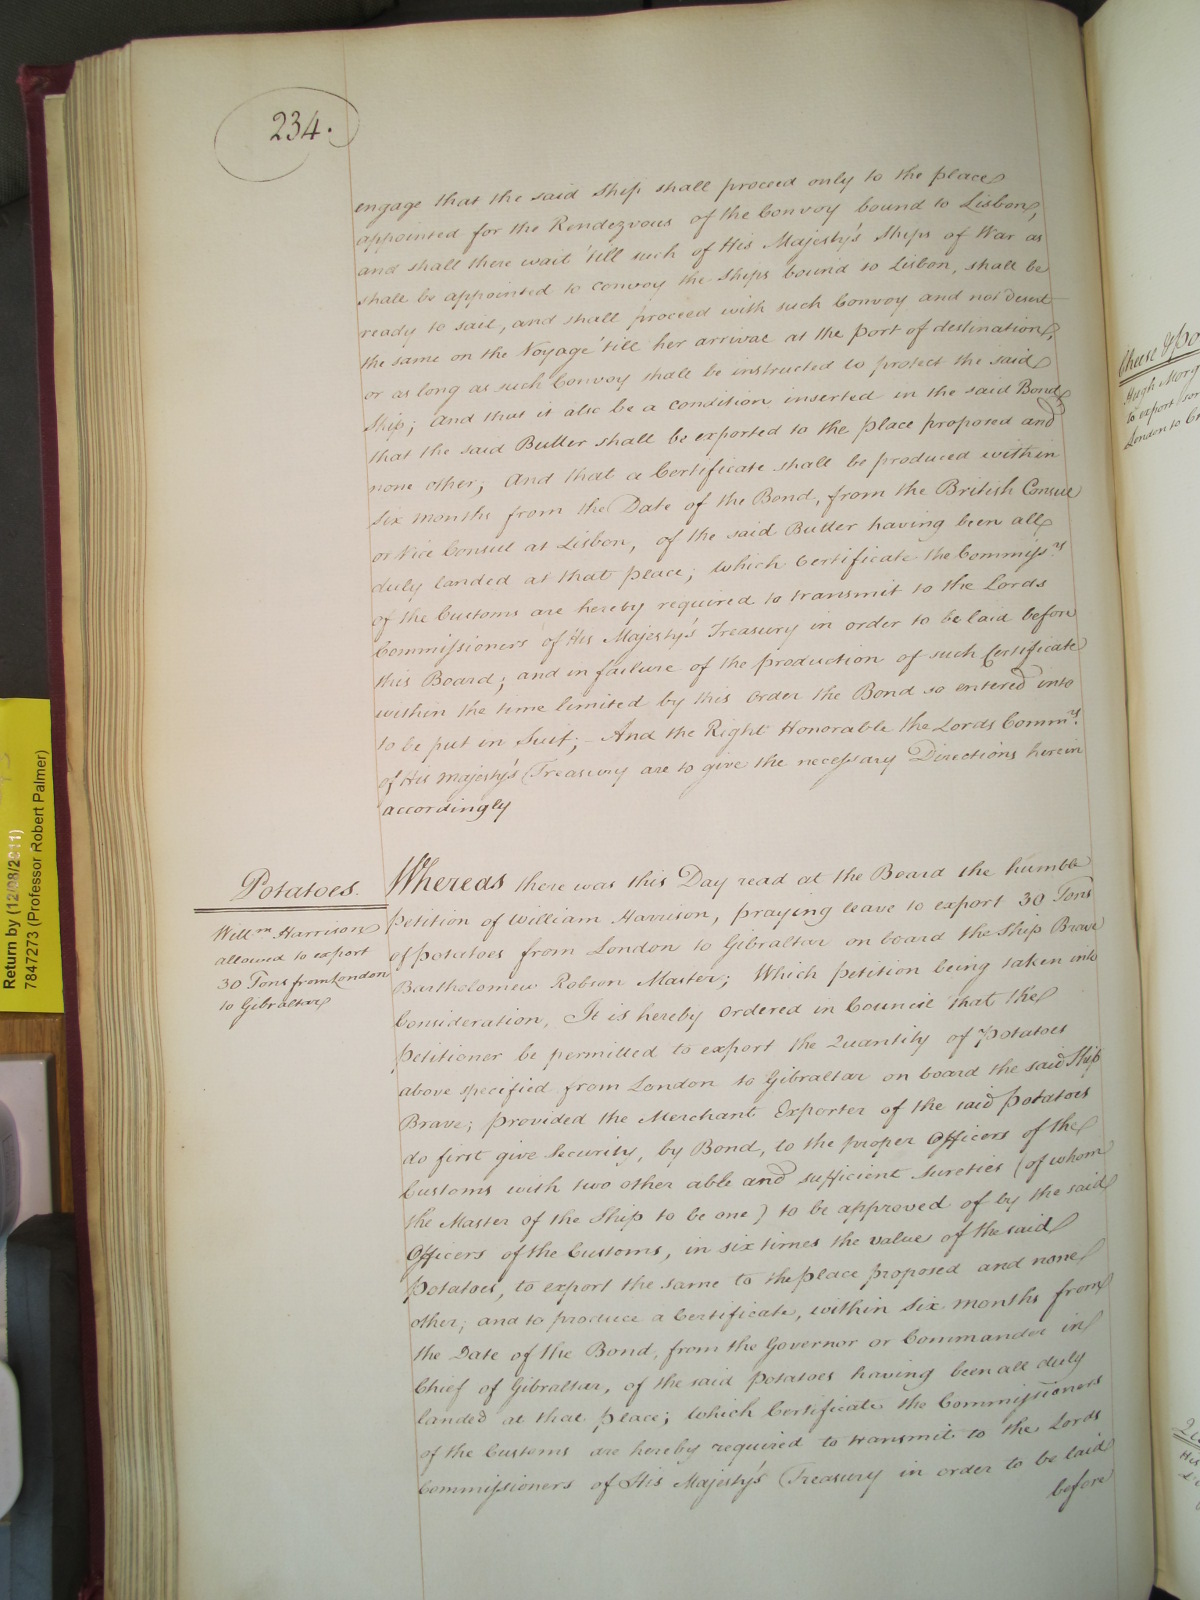 234.
engage that the said Ship shall proceed only to the place
appointed for the Rendezvous of the Convoy bound to Lisbon,
and shall there wait 'till such of His Majesty's Ships of War as
shall be appointed to convoy the Ships bound to Lisbon, shall be
ready to sail, and shall proceed with such Convoy and not desert
the same on the Voyage 'till her arrival at the port of destination,
or as long as such Convoy shall be instructed to protect the said
Ship; And that it also be a condition inserted in the said Bond,
that the said Butter shall be exported to the place proposed and
none other; And that a Certificate shall be produced within
Six months from the Date of the Bond, from the British Consul
or Vice Consul at Lisbon, of the said Butter having been all
duly landed at that place; which Certificate the Commiss.rs
of the Customs are hereby required to transmit to the Lords
Commissioners of His Majesty's Treasury in order to be laid before
this Board; and in failure of the production of such Certificate
within the time limited by this order the Bond so entered into
to be put in Suit; - And the Right Honorable the Lords Comm.rs
of His Majesty's Treasury are to give the necessary Directions herein
accordingly
Potatoes.
Will.m Harrison
allowed to export
30 Tons from London
to Gibraltar
Whereas there was this Day read at the Board the humble
Petition of William Harrison, praying leave to export 30 Tons
of potatoes from London to Gibraltar on board the Ship Brave
Bartholomew Robson Master; Which petition being taken into
Consideration, It is hereby Ordered in Council that the
Petitioner be permitted to export the Quantity of Potatoes
above specified from London to Gibraltar on board the said Ship
Brave; provided the Merchant Exporter of the said potatoes
do first give Security, by Bond, to the proper Officers of the
Customs with two other able and sufficient Sureties (of whom
the Master of the Ship to be one) to be approved of by the said
Officers of the Customs, in six times the value of the said
potatoes, to export the same to the place proposed and none
other; and to produce a Certificate, within six months from
the Date of the Bond, from the Governor or Commander in
Chief of Gibraltar, of the said potatoes having been all duly
landed at that place; which Certificate the Commissioners
of the Customs are hereby required to transmit to the Lords
Commissioners of His Majesty's Treasury in order to be laid
before
Return by (12/08/2011)
7847273 (Professor Robert Palmer)
Hugh Morg
to export
London to